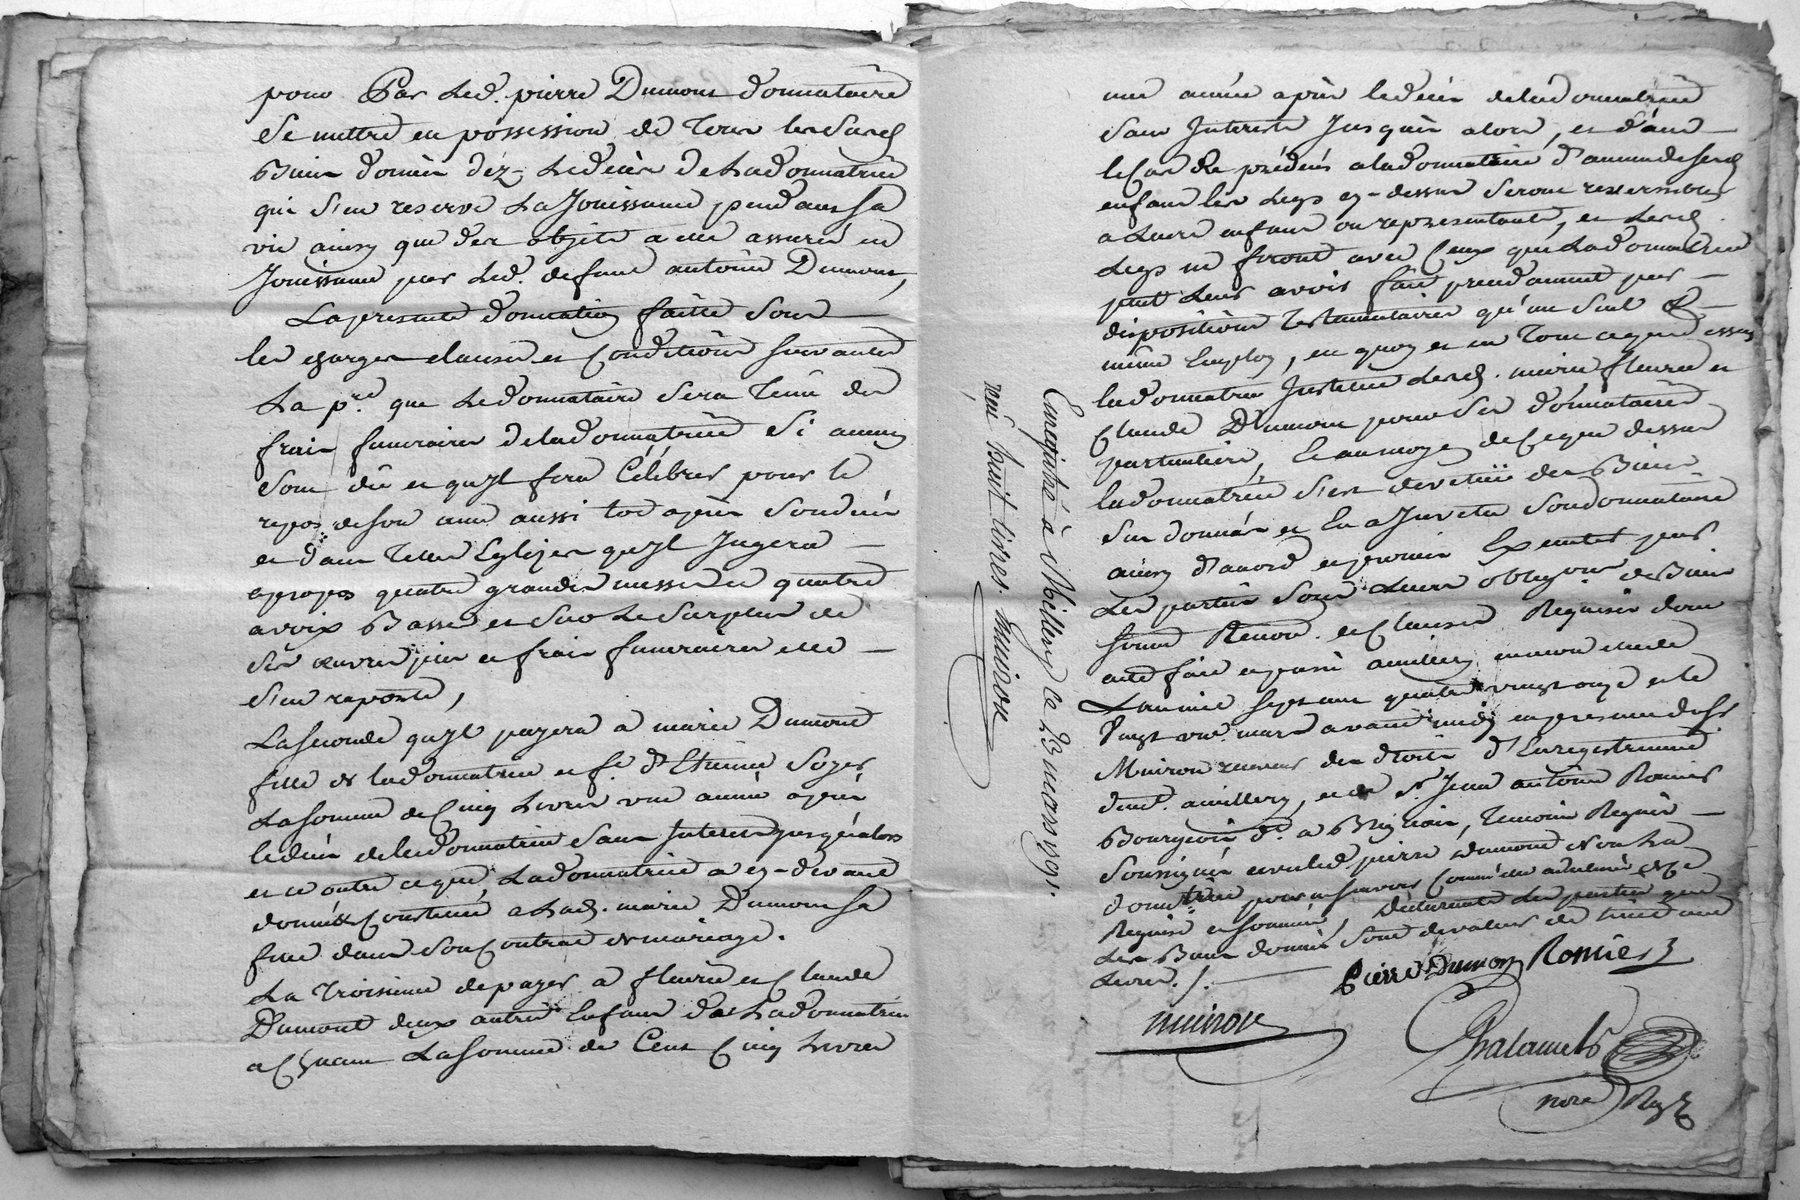 pour Par Led. pierre Dumont donnataire
Se mettre en possession de Tous les Susd
Biens donnés déz Ledécès De Ladonnatrice
qui S'en reserve La Jouissance pendant Sa
vie ainsy que des objets a elle assurés en
Jouissance par Led. defunt antoine Dumont,
Lapresente donnation faitte Sous
les charges clauses et Conditions Suivantes
La p.re que Ledonnataire Sera Tenu des
frais funeraires deladonnatrice Si aucuns
Sont dû et qu'jl fera Célébrer pour le
repos deson ame aussi tot après Sondécés
et dans Telles Eglizes qu'jl Jugera
apropos quatre grandes messes et quatre
avoix Basse et Sur Le Surplus de
Ses œuvres pies et frais funeraires elle
S'en raporte,
Laseconde qu'jl payera a marie Dumont
fille de ladonnatrice et fe. d'Etienne Soyer
Lasomme deCinq Livres une année après
ledécès deladonnatrice Sans Interets jusqu'alors
et ce outre ceque Ladonnatrice a cy-devant
donné et Constitué a Lad. marie Dumont Sa
fille dans Son Contrat de mariage.
La Troisieme depayer a fleurie et Claude
Dumont deux autres Enfans de Ladonnatrice
a Chacun Lasomme de Cent Cinq Livres
une année après ledécès deladonnatrice
Sans Interets Jusqu'a alors, et dans
leCas de prédécés aladonnatrice d'aucun desesd
enfans les Legs cy-dessus Seront reversibles
a Leurs enfans ou representants, et Lesd
Legs ne feront avec Ceux que Ladonnatrice
peut Leurs avoir fait precedament par
dispositions Testamentaires qu'un Seul &
même Employ, en quoy et en Tout cequedessus
ladonnatrice Institue Lesd. marie fleurie et
Claude Dumont pour Ses donnataires
particuliers, Et aumoyen deCeque dessus
ladonnatrice S'est devetüe des Biens
Sus donnés et En a Investu Sondonnataire
ainsy d'acord et promis Executer par
Les parties Sous Leurs obligons. deBiens
Soum Renon. et Clauses Requises dont
acte fait et passé amillery maison curiale
L'an mil Sept cent quatre vingt onze et le
Vingt un mars avant midy en presence deSr
Muiron receveur des droits d'Enregistrement
demt. amillery, et de Sr Jean antoine Romier
Bourgeois dt. a Brignais, Temoins Requis
Soussignés avecled pierre Dumont Non La
donatrice pour ne Savoir Comme elle adeclaré de Ce
Requise et Sommée, Declarants Les parties que
Les Biens donnés Sont devaleur de
Livres ./.
Pierre Dumon Romier
muiron
Chalamel
nore Ryl
Enregistré à Millery le 23 mars 1791.
reçu huit livres. muiron